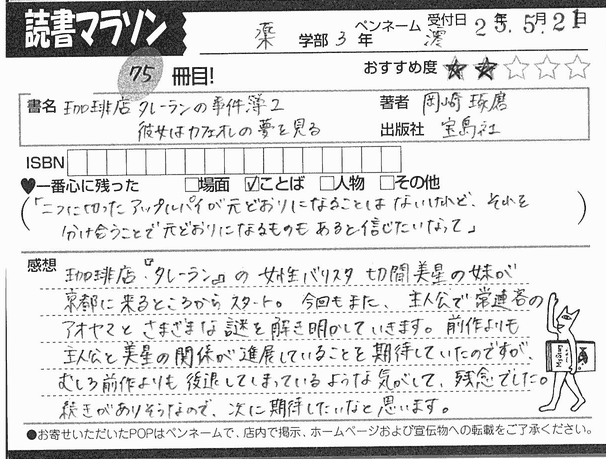 読書マラソン
薬 学部 3 年 ペンネーム 澪 受付日 23年5月21日
75 冊目! おすすめ度 ★★☆☆☆
書名 珈琲店タレーランの事件簿2 著者 岡崎琢磨
彼女はカフェオレの夢を見る 出版社 宝島社
ISBN
♥一番心に残った □場面 ☑ことば □人物 □その他
(「二つに切ったアップルパイが元どおりになることはないけれど、それを
分け合うことで元どおりになるものもあると信じたいなって」)
感想 珈琲店『タレーラン』の女性バリスタ切間美星の妹が
京都に来るところからスタート。今回もまた、主人公で常連客の
アオヤマとさまざまな謎を解き明かしていきます。前作よりも
主人公と美星の関係が進展していることを期待していたのですが、
むしろ前作よりも後退してしまっているような気がして、残念でした。
続きがありそうなので、次に期待したいなと思います。
●お寄せいただいたPOPはペンネームで、店内で掲示、ホームページおよび宣伝物への転載をご了承ください。